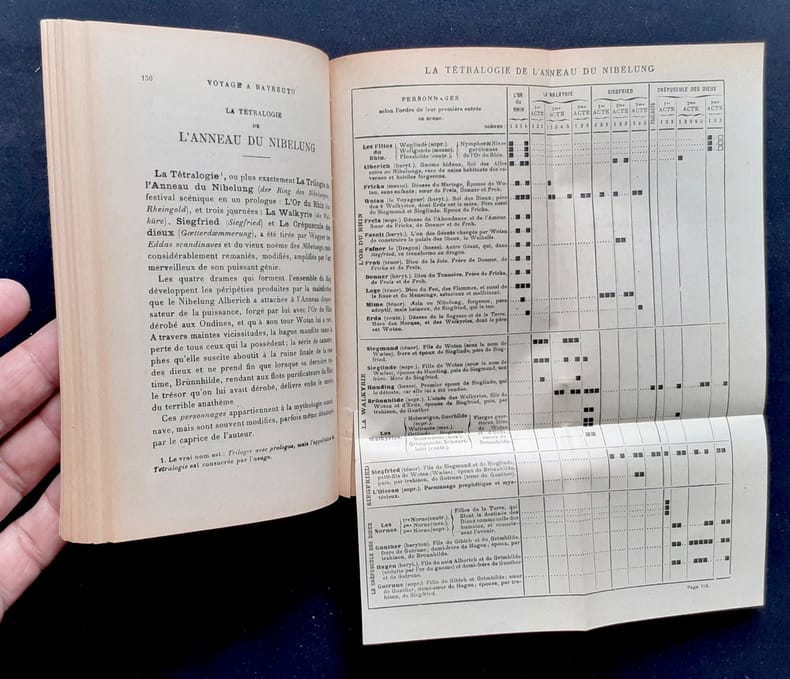 150
VOYAGE A BAYREUTH
LA TÉTRALOGIE
DE
L'ANNEAU DU NIBELUNG
La Tétralogie¹, ou plus exactement La Trilogie de
l'Anneau du Nibelung (der Ring des Nibelungen,
festival scénique en un prologue : L'Or du Rhin (das
Rheingold), et trois journées : La Walkyrie (die Wal-
küre), Siegfried (Siegfried) et Le Crépuscule des
dieux (Gœtterdæmmerung), a été tirée par Wagner des
Eddas scandinaves et du vieux poème des Nibelungen, mais
considérablement remaniés, modifiés, amplifiés par l'art
merveilleux de son puissant génie.
Les quatre drames qui forment l'ensemble du Ring
développent les péripéties produites par la malédiction
que le Nibelung Alberich a attachée à l'Anneau dispen-
sateur de la puissance, forgé par lui avec l'Or du Rhin
dérobé aux Ondines, et qu'à son tour Wotan lui a ravi.
A travers maintes vicissitudes, la bague maudite cause la
perte de tous ceux qui la possèdent ; la série de catastro-
phes qu'elle suscite aboutit à la ruine finale de la race
des dieux et ne prend fin que lorsque sa dernière vic-
time, Brünnhilde, rendant aux flots purificateurs du Rhin
le trésor qu'on lui avait dérobé, délivre enfin le monde
du terrible anathème.
Ces personnages appartiennent à la mythologie scandi-
nave, mais sont souvent modifiés, parfois même dénaturés
par le caprice de l'auteur.
1. Le vrai nom est : Trilogie avec prologue, mais l'appellation de
Tétralogie est consacrée par l'usage.
LA TÉTRALOGIE DE L'ANNEAU DU NIBELUNG
PERSONNAGES
selon l'ordre de leur première entrée
en scène.
scènes
L'OR
du
RHIN
LA WALKYRIE
SIEGFRIED
CRÉPUSCULE DES DIEUX
ACTE ACTE ACTE
ACTE ACTE ACTE
PROLOGUE
ACTE ACTE ACTE
L'OR DU RHIN
Les Filles
du
Rhin.
Woglinde (sopr.)
Wellgunde (mezzo).
Flosshilde (contr.)
Nymphes Nixes
gardiennes
de l'Or du Rhin.
Alberich (baryt.). Gnome hideux, Roi des Alfes
noirs ou Nibelungs, race de nains habitants des ca-
vernes et habiles forgerons.
Fricka (mezzo). Déesse du Mariage, Épouse de Wo-
tan, sans enfants; sœur de Freïa, Donner et Froh.
Wotan (le Voyageur) (baryt.). Roi des Dieux; père
des 9 Walkyries, dont Erda est la mère. Père aussi
de Siegmund et Sieglinde. Époux de Fricka.
Freïa (sopr.) Déesse de l'Abondance et de l'Amour.
Sœur de Fricka, de Donner et de Froh.
Fasolt (baryt.). L'un des Géants chargés par Wotan
de construire le palais des Dieux, le Walhalla.
Fafner [le Dragon] (basse). Autre Géant, qui, dans
Siegfried, se transforme en dragon.
Froh (ténor). Dieu de la Joie. Frère de Donner, de
Fricka et de Freïa.
Donner (baryt.). Dieu du Tonnerre. Frère de Fricka,
de Freïa et de Froh.
Loge (ténor). Dieu du Feu, des Flammes, et aussi de
la Ruse et du Mensonge, astucieux et malfaisant.
Mime (ténor). Nain ou Nibelung, forgeron, père
adoptif, mais haineux, de Siegfried, qui le tue.
Erda (contr.). Déesse de la Sagesse et de la Terre.
Mère des Nornes, et des Walkyries, dont le père
est Wotan.
LA WALKYRIE
Siegmund (ténor). Fils de Wotan (sous le nom de
Wælse), frère et époux de Sieglinde, père de Sieg-
fried.
Sieglinde (sopr.). Fille de Wotan (sous le nom de
Wælse), épouse de Hunding, puis de Siegmund, son
frère. Mère de Siegfried.
Hunding (basse). Premier époux de Sieglinde, qui
le déteste, car elle lui a été vendue.
Brünnhilde (sopr.). L'aînée des Walkyries, fille de
Wotan et d'Erda, épouse de Siegfried, puis, par
trahison, de Gunther.
Les
Walkyries.
SIEGFRIED
Siegfried (ténor). Fils de Siegmund et de Sieglinde,
petit-fils de Wotan (Wælse); époux de Brünnhilde,
puis, par trahison, de Gutrune (sœur de Gunther).
L'Oiseau (sopr.). Personnage prophétique et mys-
térieux.
LE CRÉPUSCULE DES DIEUX
Les
Nornes.
1re Norne (contr.).
2me Norne (mez.).
3me Norne (sopr.).
Filles de la Terre, qui
filent la destinée des
Dieux comme celle des
humains, et connais-
sent l'avenir.
Gunther (baryton). Fils de Gibich et de Grimhilde,
frère de Gutrune; demi-frère de Hagen; époux, par
trahison, de Brünnhilde.
Hagen (baryt.). Fils du nain Alberich et de Grimhilde
(séduite par l'or du gnome) et demi-frère de Gunther
et de Gutrune.
Gutrune (sopr.) Fille de Gibich et Grimhilde; sœur
de Gunther, demi-sœur de Hagen; épouse, par tra-
hison, de Siegfried.